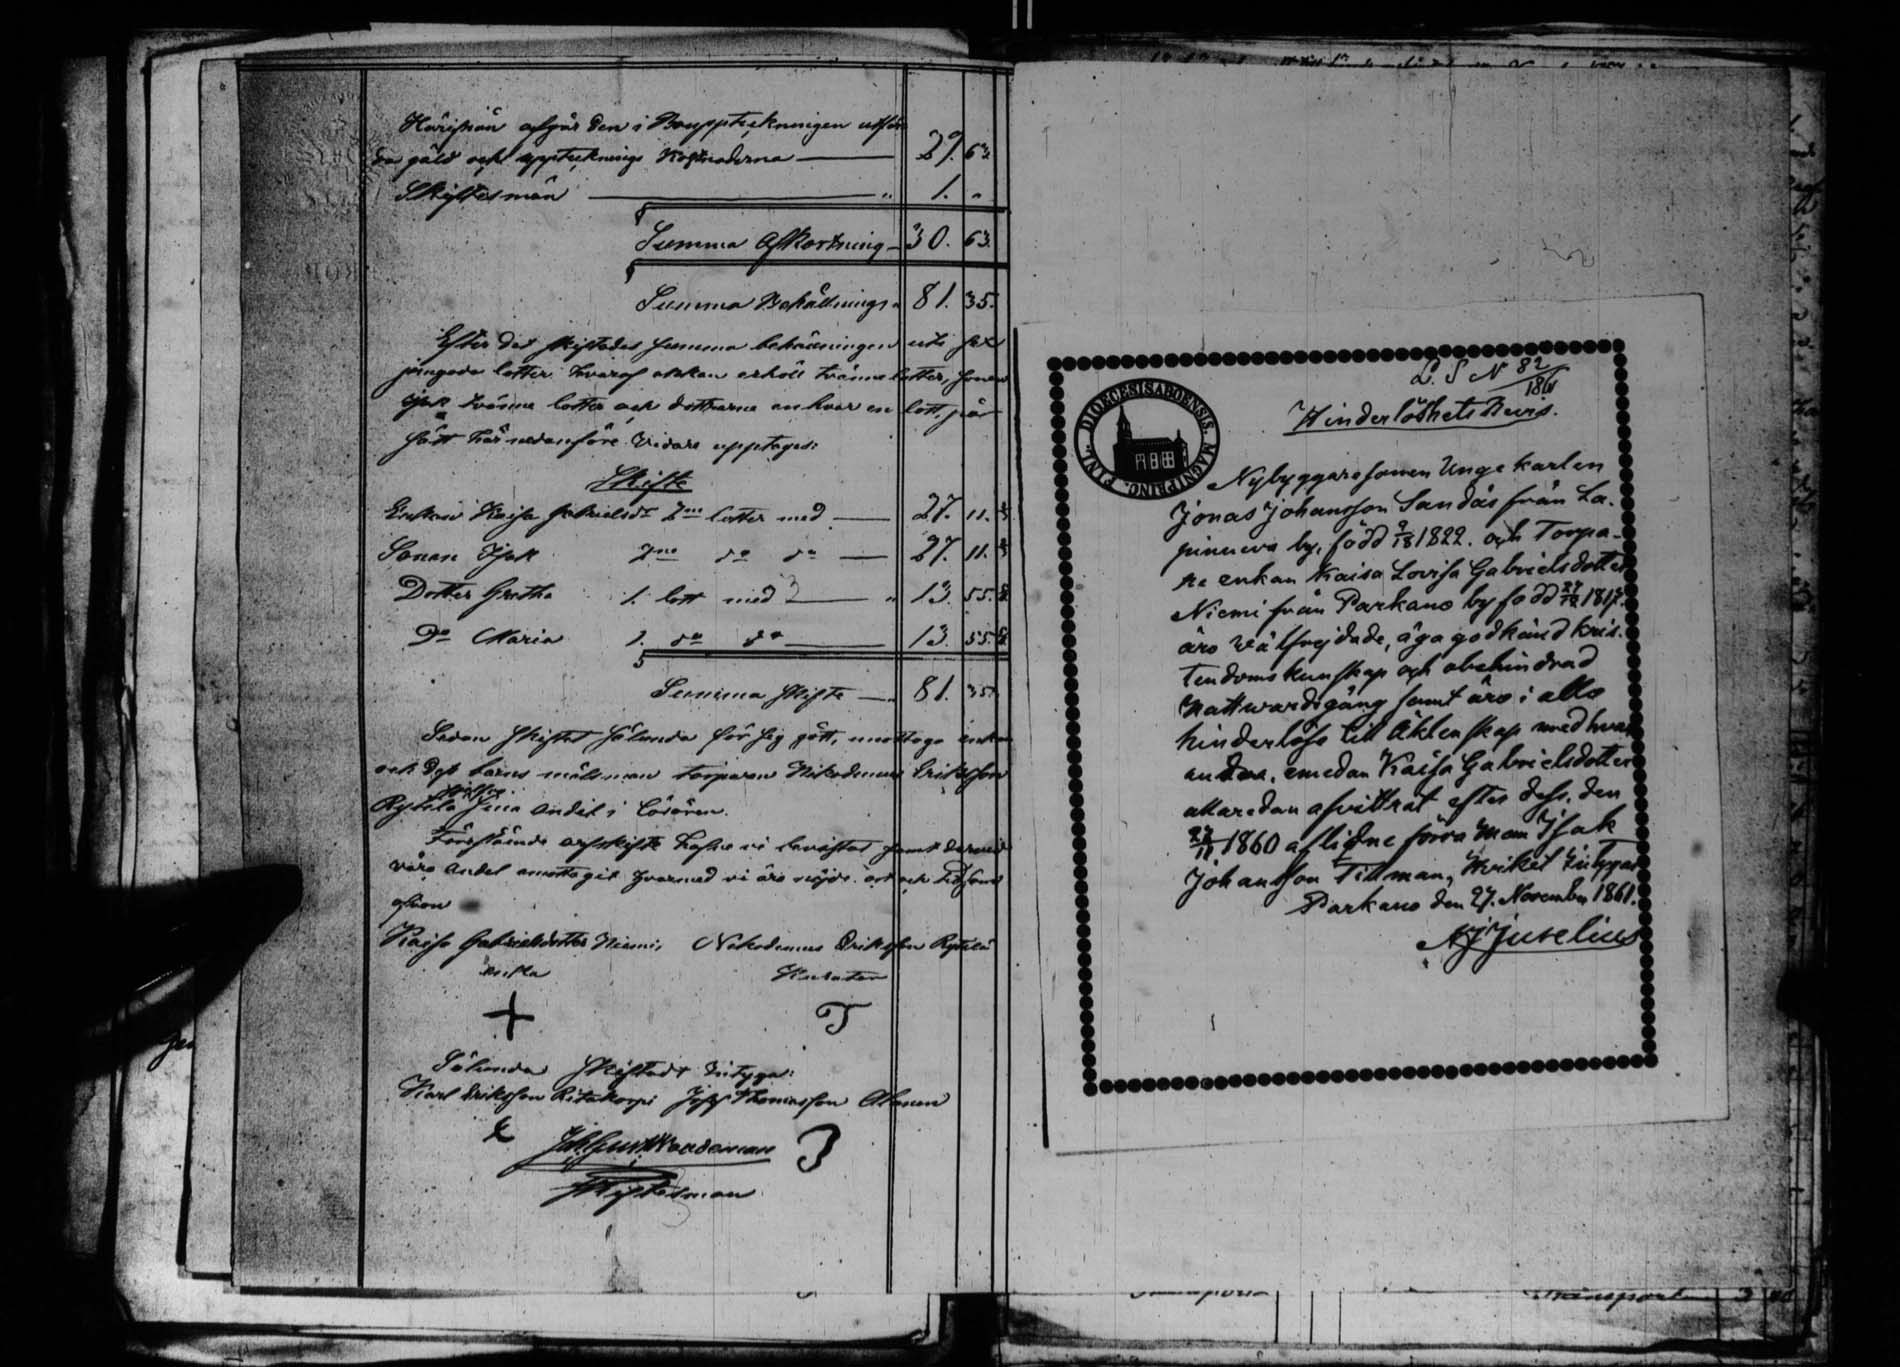 Härifrån afgår den i Bouppteckningen utför-
da gäld och uppteckings Kostnaderna — 29. 63.
Skiftesmän — „ 1. „
Summa Afkortning – 30. 63.
Summa Behållning „ 81. 35.
Efter det skiftades summa behållningen uti sex
jemgoda lotter hvaraf enkan erhöll tvänne lotter, sonen
Isak tvänne lotter och döttrarne en hvar en lott, på
sätt här nedanföre vidare upptages:
Skifte
Enkan Kaisa Gabrielsdr 2ne lotter med — 27. 11.
Sonen Isak 2ne do do — 27. 11.
Dotter Gretha 1. lott med — „ 13. 55.
Do Maria 1. do do — 13. 55.
Summa Skifte — 81. 35.
Sedan skiftet sålunda för sig gått, emottogo enkan
och dess barns målsman torparen Nikodemus Eriksson
Rytilä sina andel i lösören.
Förestående arfskifte hafva vi bevistat samt dermed
våra andel emottagit hvarmed vi äro nöjde. ort och tid som
ofvan
Kaisa Gabrielsdotter Niemi, Nikodemus Eriksson Rytilä
enka Kurator
Sålunda Skiftadt intyga:
Karl Eriksson Ritakorpi Josef Thomasson Alanen
Skiftesman
L. S N 82/1861
Hinderlöshets Bevis.
DIOECESIS ABOENSIS. MAGNI PRINC. FINL.
Nybyggaresonen Unge karlen
Jonas Johansson Sandås från La-
pinneva by, född 9/18 1822. och Torpa-
re enkan Kaisa Lovisa Gabrielsdotter
Niemi från Parkano by född
äro välfrejdade, äga godkänd kris-
tendomskunskap och obehindrad
Nattwardsgång samt äro i allo
hinderlöse till Äktenskap med hvar
andra, emedan Kaisa Gabrielsdotter
allaredan afvittrat efter dess, den
27/11 1860 aflidne förra man Isak
Johansson Tillman, hvilket intygas
Parkano den 27. November 1861.
A J Juselius
Transport